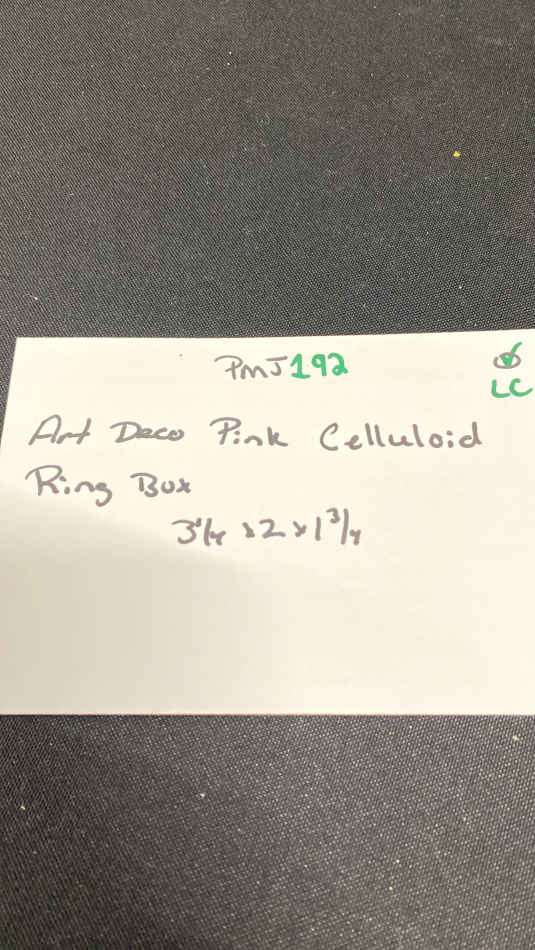 PMJ192
LC
Art Deco Pink Celluloid
Ring Box
3 1/4 x 2 x 1 3/4